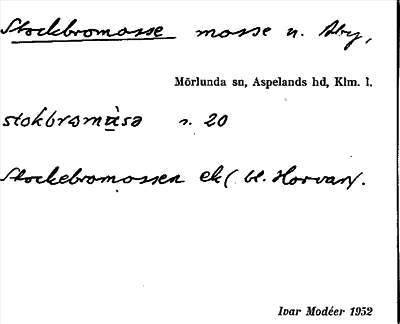 Stockbromosse mosse n. Åby,
Mörlunda sn, Aspelands hd, Klm. l.
stokbromåsə s. 20
Stockebromossen ek( bl. Horvan).
Ivar Modéer 1952